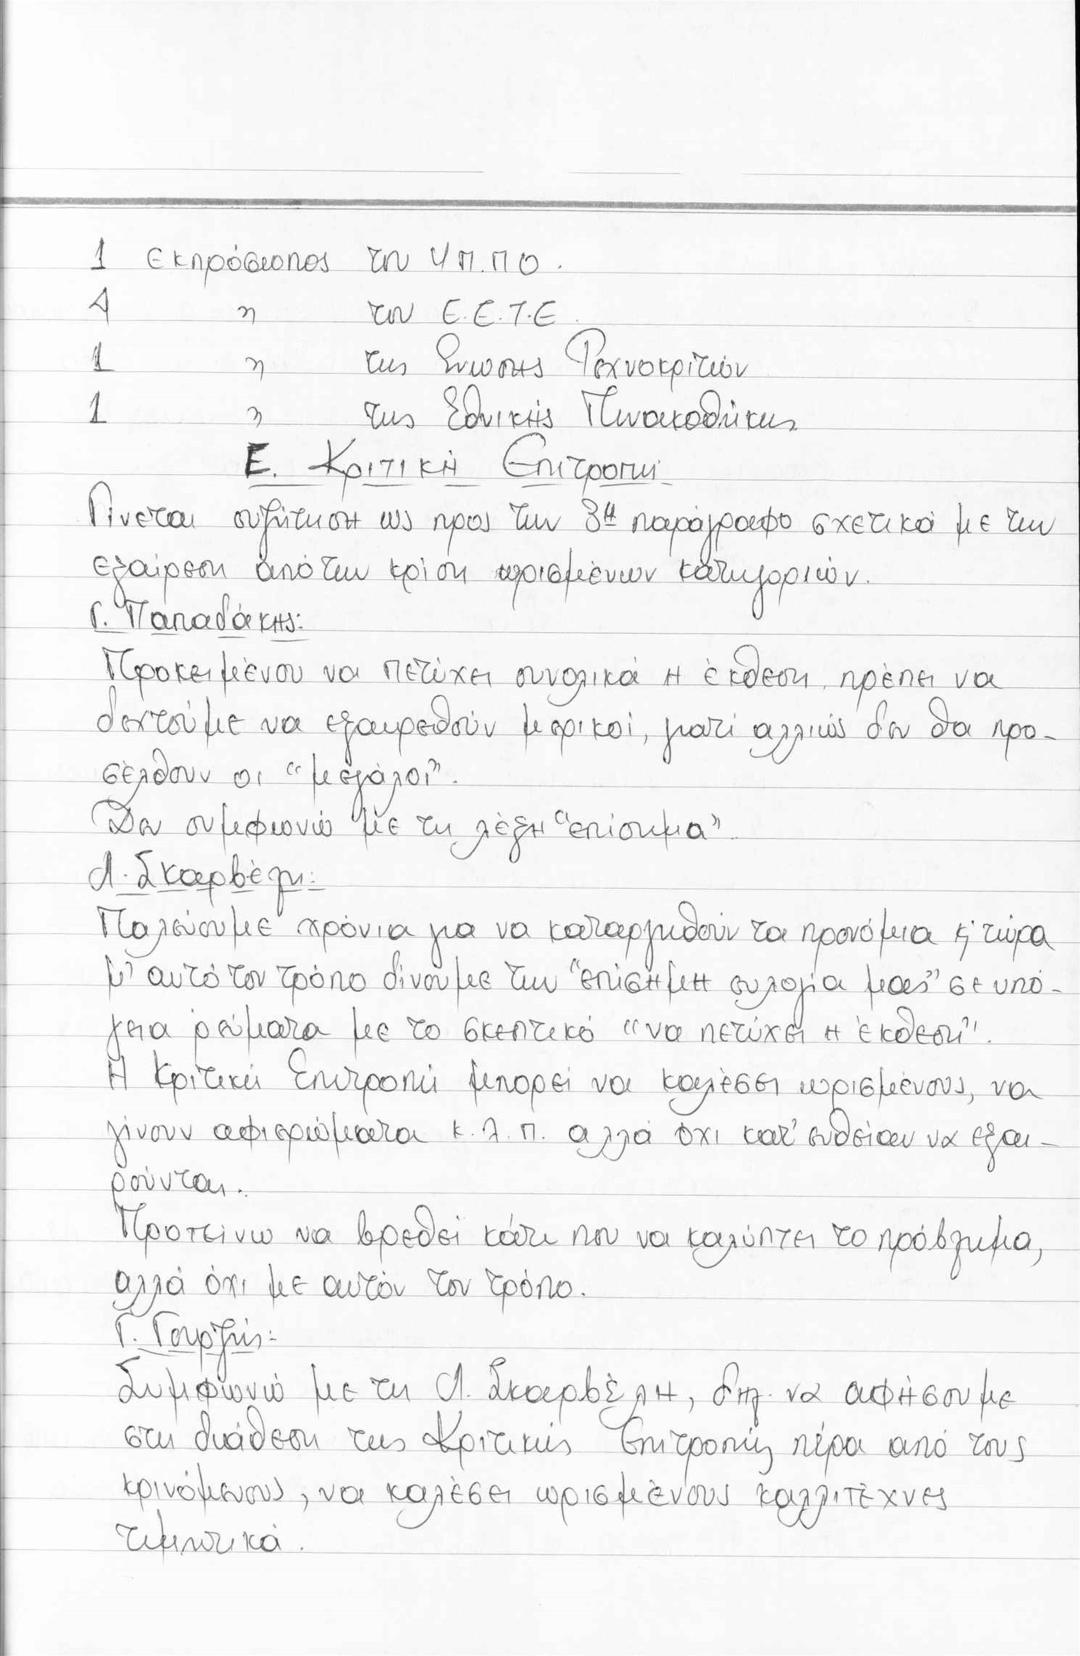 1 εκπρόσωπος του ΥΠ.ΠΟ.
4 " του Ε.Ε.Τ.Ε.
1 " της Ένωσης Τεχνοκριτών
1 " της Εθνικής Πινακοθήκης
Ε. Κριτική Επιτροπή
Γίνεται συζήτηση ως προς την 3η παράγραφο σχετικά με την
εξαίρεση από την κρίση ωρισμένων κατηγοριών.
Γ. Παπαδάκης:
Προκειμένου να πετύχει συνολικά η έκθεση πρέπει να
δεχτούμε να εξαιρεθούν μερικοί, γιατί αλλιώς δεν θα προ-
σέλθουν οι "μεγάλοι".
Δεν συμφωνώ με τη λέξη "επίσημα"
Λ. Σκαρβέλη:
Παλεύουμε χρόνια για να καταργηθούν τα προνόμια κ' τώρα
μ' αυτό τον τρόπο δίνουμε την "επίσημη ευλογία μας" σε υπό-
γεια ρεύματα με το σκεπτικό "να πετύχει η έκθεση".
Η Κριτική Επιτροπή μπορεί να καλέσει ωρισμένους, να
γίνουν αφιερώματα κ.λ.π. αλλά όχι κατ' ευθείαν να εξαι-
ρούνται.
Προτείνω να βρεθεί κάτι που να καλύπτει το πρόβλημα,
αλλά όχι με αυτόν τον τρόπο.
Γ. Γουρζής:
Συμφωνώ με τη Λ. Σκαρβέλη, δηλ. να αφήσουμε
στη διάθεση της Κριτικής Επιτροπής πέρα από τους
κρινόμενους, να καλέσει ωρισμένους καλλιτέχνες
τιμητικά.